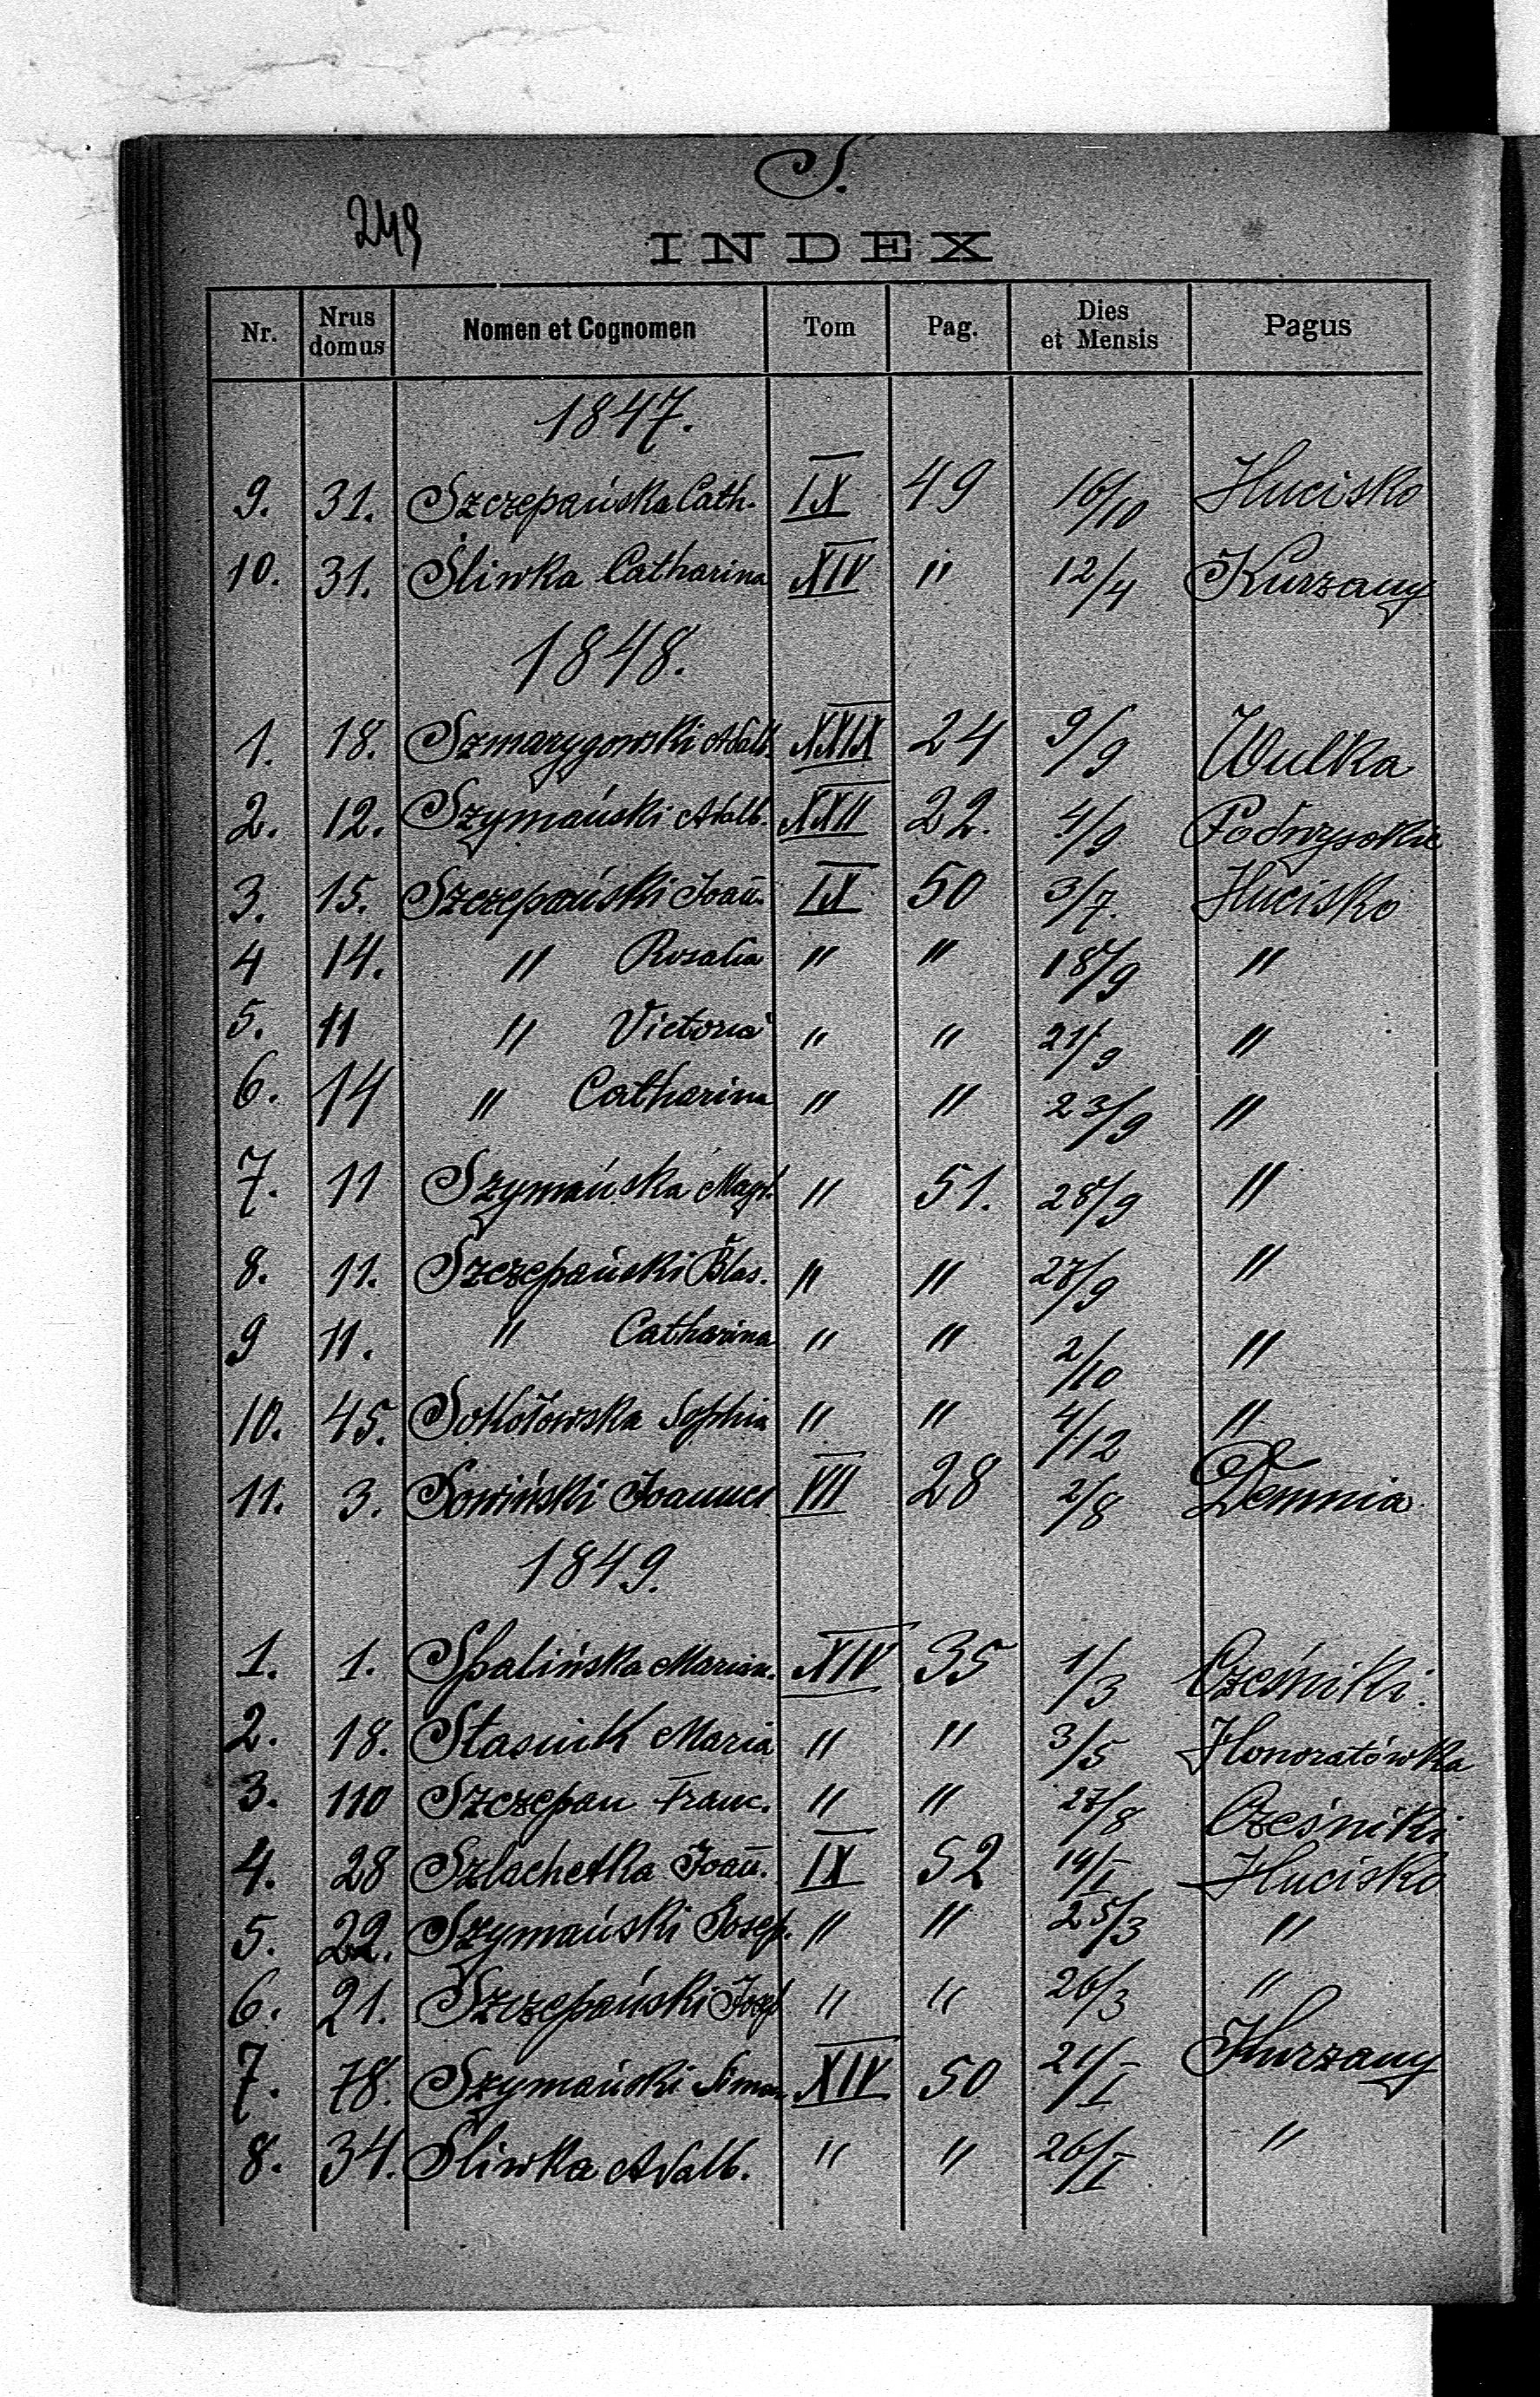 S.
249
INDEX
Nr. Nrus domus Nomen et Cognomen Tom Pag. Dies et Mensis Pagus
1847.
9. 31. Szczepańska Cath. IX 49 16/10 Hucisko
10. 31. Śliwka Catharina XIV " 12/4 Kurzany
1848.
1. 18. Szmarygowski Adalb. XXIX 24 9/9 Wulka
2. 12. Szymański Adalb. XXII 22. 4/9 Podwysokie
3. 15. Szczepański Joan̄. IX 50 3/7. Hucisko
4 14. " Rosalia " " 18/9 "
5. 11 " Victoria " " 21/9 "
6. 14 " Catharina " " 23/9 "
7. 11 Szymańska Magd. " 51. 28/9 "
8. 11. Szczepański Blas. " " 28/9 "
9 11. " Catharina " " 2/10 "
10. 45. Sokołowska Sophia " " 4/12 "
11. 3. Sowiński Joannes VII 28 2/8 Demnia
1849.
1. 1. Spalińska Marian. XIV 35 1/3 Cześniki.
2. 18. Stasiuk Maria " " 3/5 Honoratówka
3. 110 Szczepan Franc. " " 27/8 Cześniki
4. 28 Szlachetka Joan̄. IX 52 14/I Hucisko
5. 22. Szymański Josep. " " 25/3 "
6. 21. Szczepański Josef " " 26/3 "
7. 78. Szymański Simon XIV 50 21/I Kurzany
8. 34. Śliwka Adalb. " " 26/I "